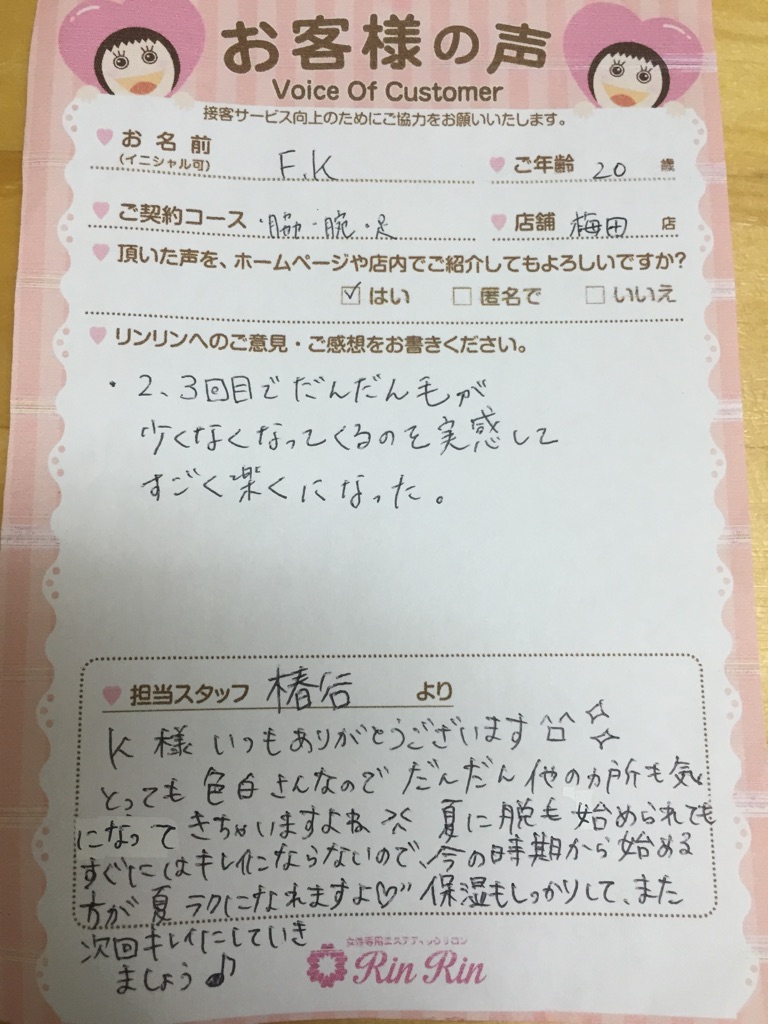 お客様の声
Voice Of Customer
接客サービス向上のためにご協力をお願いいたします。
お名前 F.K ご年齢 20 歳
(イニシャル可)
ご契約コース ・脇・腕・足 店舗 梅田 店
頂いた声を、ホームページや店内でご紹介してもよろしいですか?
☑はい □匿名で □いいえ
リンリンへのご意見・ご感想をお書きください。
・2、3回目でだんだん毛が
少くなくなってくるのを実感して
すごく楽くになった。
担当スタッフ 椿谷 より
K様 いつもありがとうございます^^
とっても色白さんなので だんだん他のカ所も気
になってきちゃいますよね 夏に脱毛始められても
すぐにはキレイにならないので、今の時期から始める
方が夏ラクになれますよ♡ 保湿もしっかりして、また
次回キレイにしていき
ましょう♪
女性専用エステティックサロン
Rin Rin